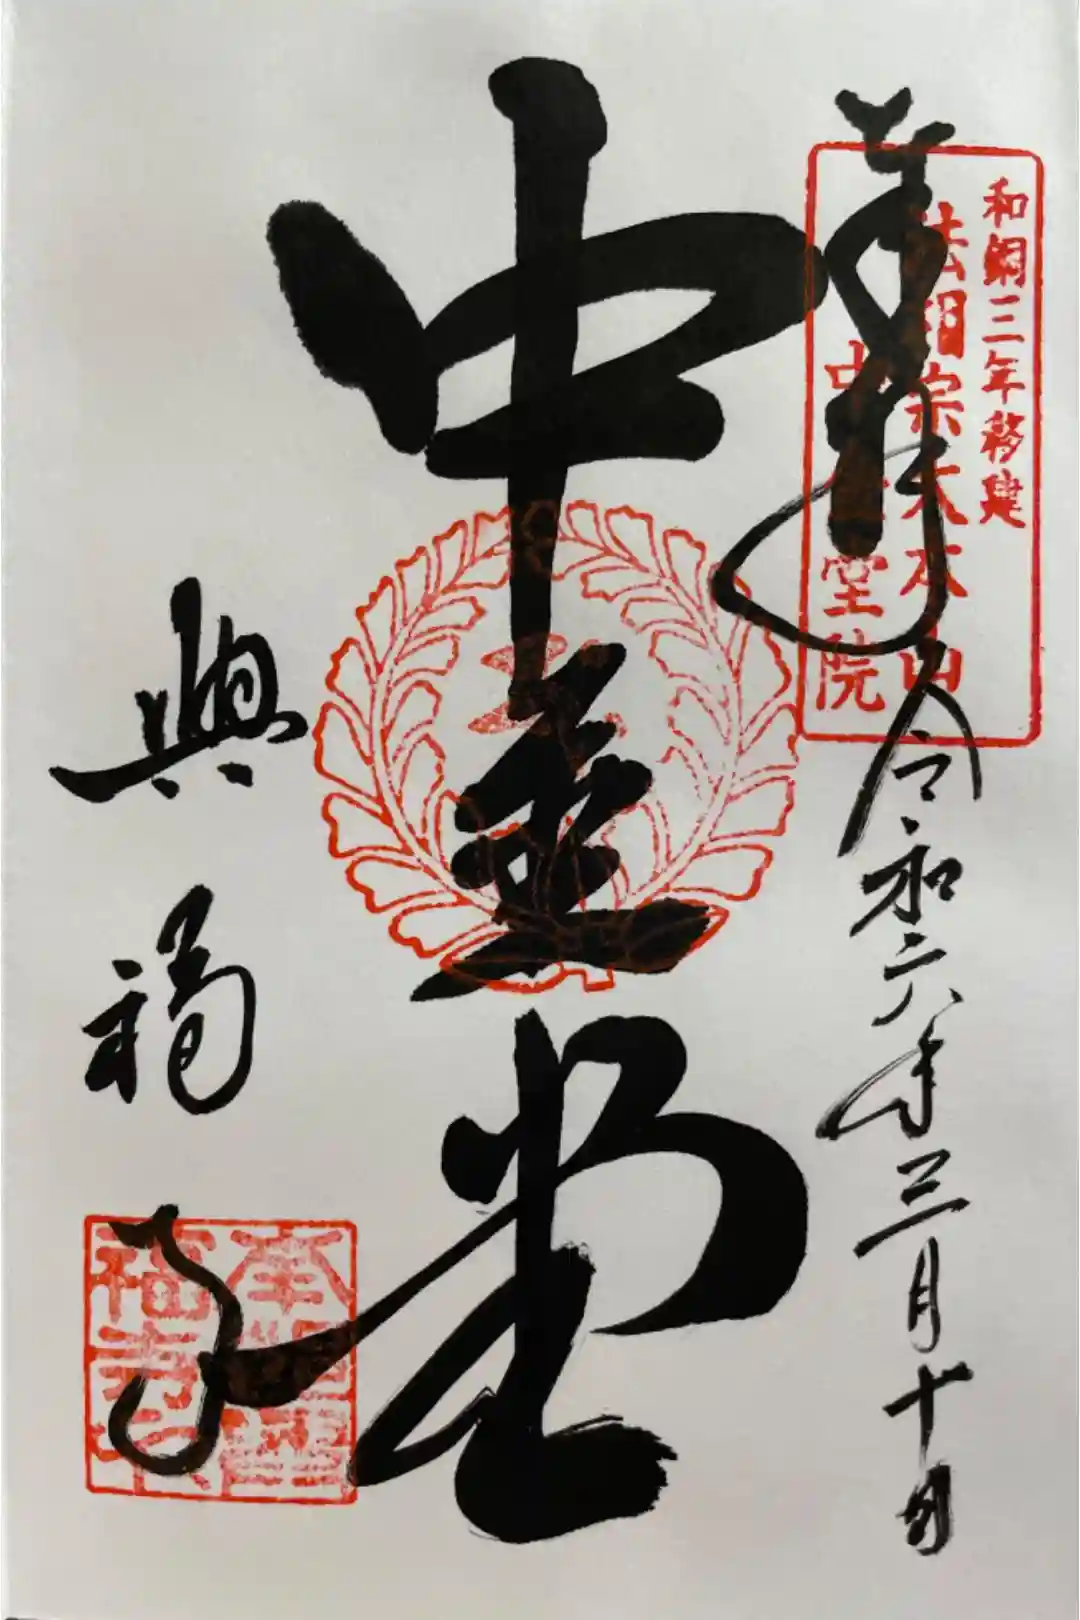 和銅三年移建
法相宗大本山
中金堂院
奉拝
令和六年三月十日
中金堂
興福寺